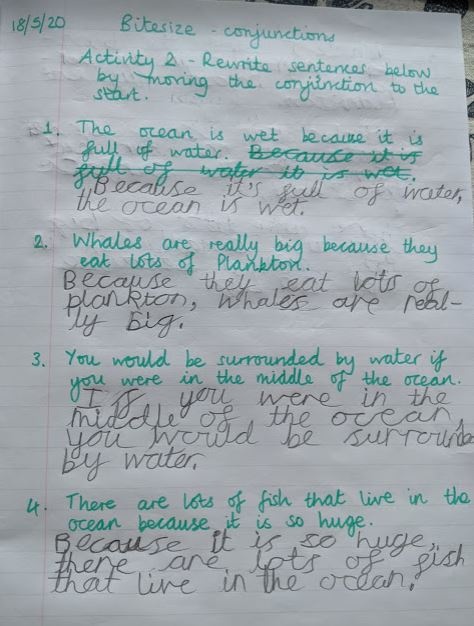 18/5/20 Bitesize - conjunctions
Activity 2 - Rewrite sentences below
by moving the conjunction to the
start.
1. The ocean is wet because it is
full of water. Because it is
full of water it is wet.
Because it's full of water,
the ocean is wet.
2. Whales are really big because they
eat lots of Plankton.
Because they eat lots of
plankton, whales are real-
ly big.
3. You would be surrounded by water if
you were in the middle of the ocean.
If you were in the
middle of the ocean,
you would be surrounde
by water.
4. There are lots of fish that live in the
ocean because it is so huge.
Because it is so huge,
there are lots of fish
that live in the ocean.